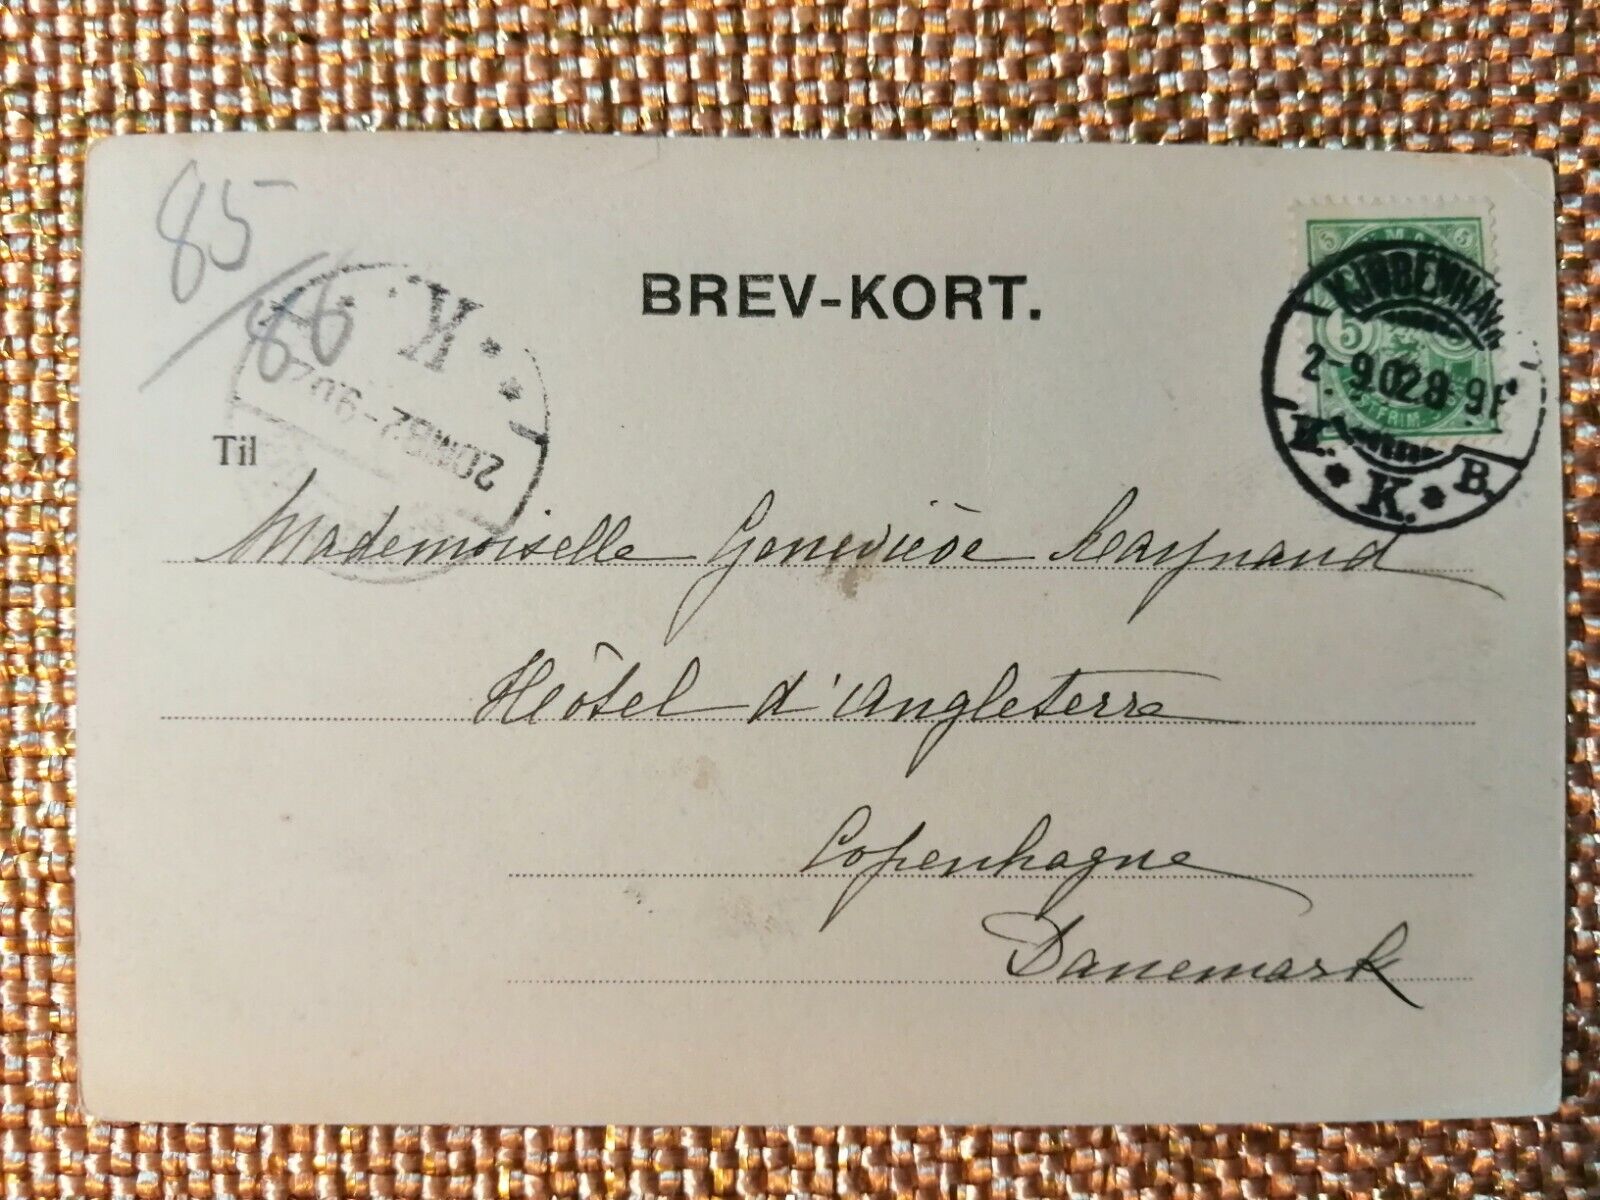 85
86
BREV-KORT.
5 5
KJØBENHAVN
5
2-9.02 8-9F
POSTFRIM.
K. K. B.
K.
2-9.02
20MB2
Til
Mademoiselle Geneviève Raynaud
Hôtel d'Angleterre
Copenhague
Danemark